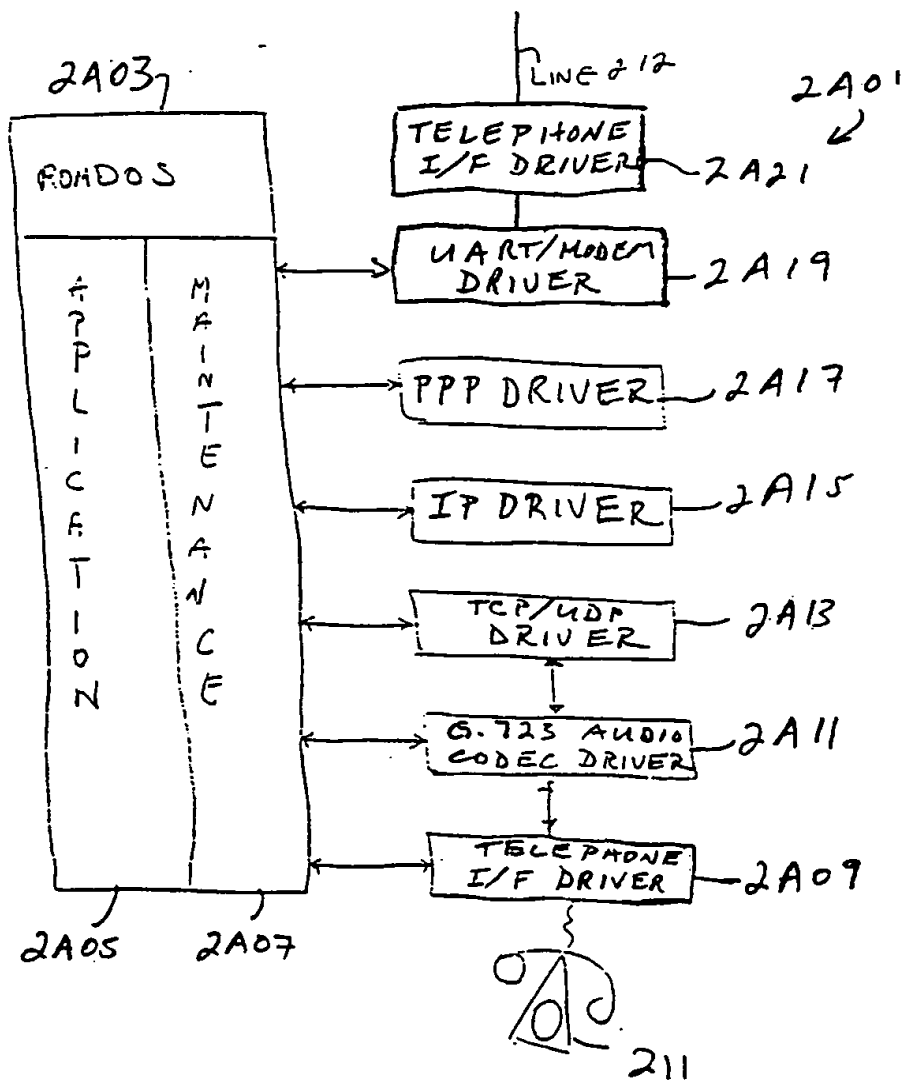 2A03
LINE 212
2A01
TELEPHONE
I/F DRIVER
2A21
ROMDOS
UART/MODEM
DRIVER
2A19
APPLICATION
MAINTENANCE
PPP DRIVER
2A17
IP DRIVER
2A15
TCP/UDP
DRIVER
2A13
G.723 AUDIO
CODEC DRIVER
2A11
TELEPHONE
I/F DRIVER
2A09
2A05
2A07
211